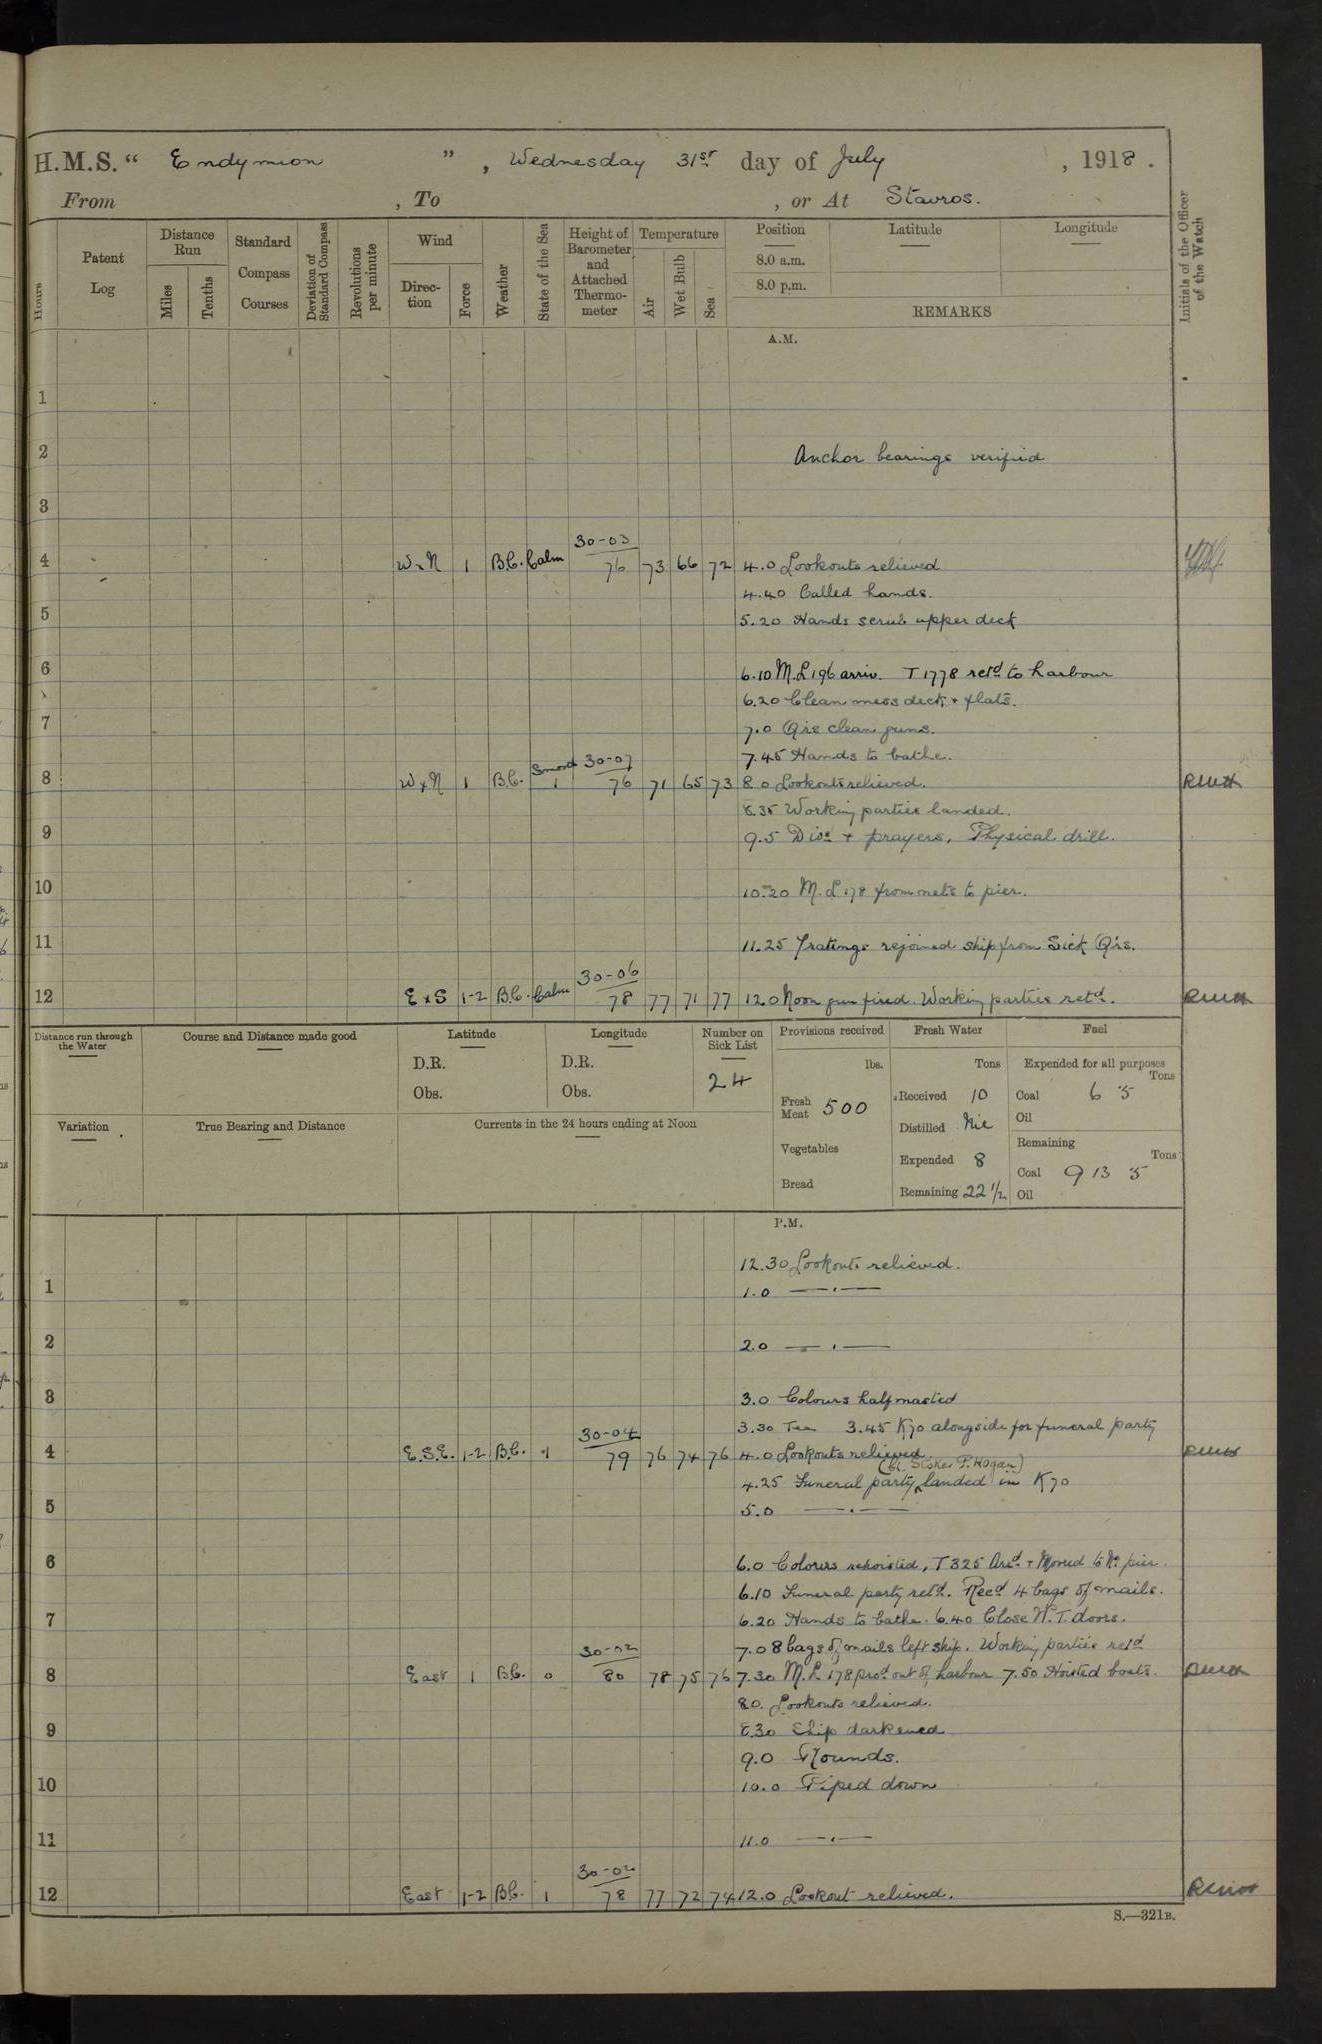 H.M.S. " Endymion ", Wednesday 31st day of July, 1918.
From , To , or At Stavros.
Hours
Patent Log
Distance Run
Miles
Tenths
Standard Compass Courses
Deviation of Standard Compass
Revolutions per minute
Wind
Direction
Force
Weather
State of the Sea
Height of Barometer and Attached Thermometer
Temperature
Air
Wet Bulb
Sea
Position
8.0 a.m.
8.0 p.m.
Latitude
Longitude
REMARKS
Initials of the Officer of the Watch
A.M.
1
2 Anchor bearings verified
3
30-03
4 WxN 1 B.C. Calm 76 73 66 72 4.0 Lookouts relieved
4.40 Called hands.
5
5.20 Hands scrub upper deck
6
6.10 M.L 196 arriv. T 1778 retd to harbour
6.20 Clean mess deck + flats.
7
7.0 Qrs clean guns.
7.45 Hands to bathe.
30-07
8 WxN 1 B.C. Smooth 1 76 71 65 73 8.0 Lookouts relieved. RWH
8.35 Working parties landed.
9
9.5 Divs + prayers, Physical drill.
10
10-20 M.L 178 from nets to pier.
11
11.25 7 ratings rejoined ship from Sick Qrs.
30-06
12 ExS 1-2 B.C. Calm 78 77 71 77 12.0 Noon gun fired. Working parties retd. RWH
Distance run through the Water
Course and Distance made good
Latitude
D.R.
Obs.
Longitude
D.R.
Obs.
Number on Sick List
24
Provisions received
lbs.
Fresh Meat 500
Vegetables
Bread
Fresh Water
Tons
Received 10
Distilled Nil
Expended 8
Remaining 22 1/2
Fuel
Expended for all purposes
Tons
Coal 6 5
Oil
Remaining
Tons
Coal 913 5
Oil
Variation
True Bearing and Distance
Currents in the 24 hours ending at Noon
P.M.
12.30 Lookouts relieved.
1
1.0 — " —
2
2.0 — " —
3
3.0 Colours half masted
3.30 Tea 3.45 K70 alongside for funeral party
30-04
4 E.S.E. 1-2 B.C. 1 79 76 74 76 4.0 Lookouts relieved RWH
(Ch. Stoker P. Hogan)
4.25 Funeral party landed in K70
5
5.0 — " —
6
6.0 Colours rehoisted, T 325 Arrd. + Moved to No pier.
6.10 Funeral party retd. Recd 4 bags of mails.
7
6.20 Hands to bathe. 6.40 Close W.T. doors.
7.0 8 bags of mails left ship. Working parties retd
30-02
8 East 1 B.C. 0 80 78 75 76 7.30 M.L 178 procd out of harbour 7.50 Hoisted boats. RWH
8.0. Lookouts relieved.
9
8.30 Ship darkened
9.0 Rounds.
10
10.0 Piped down
11
11.0 — " —
30-02
12 East 1-2 B.C. 1 78 77 72 74 12.0 Lookout relieved. RWH
S.—321B.